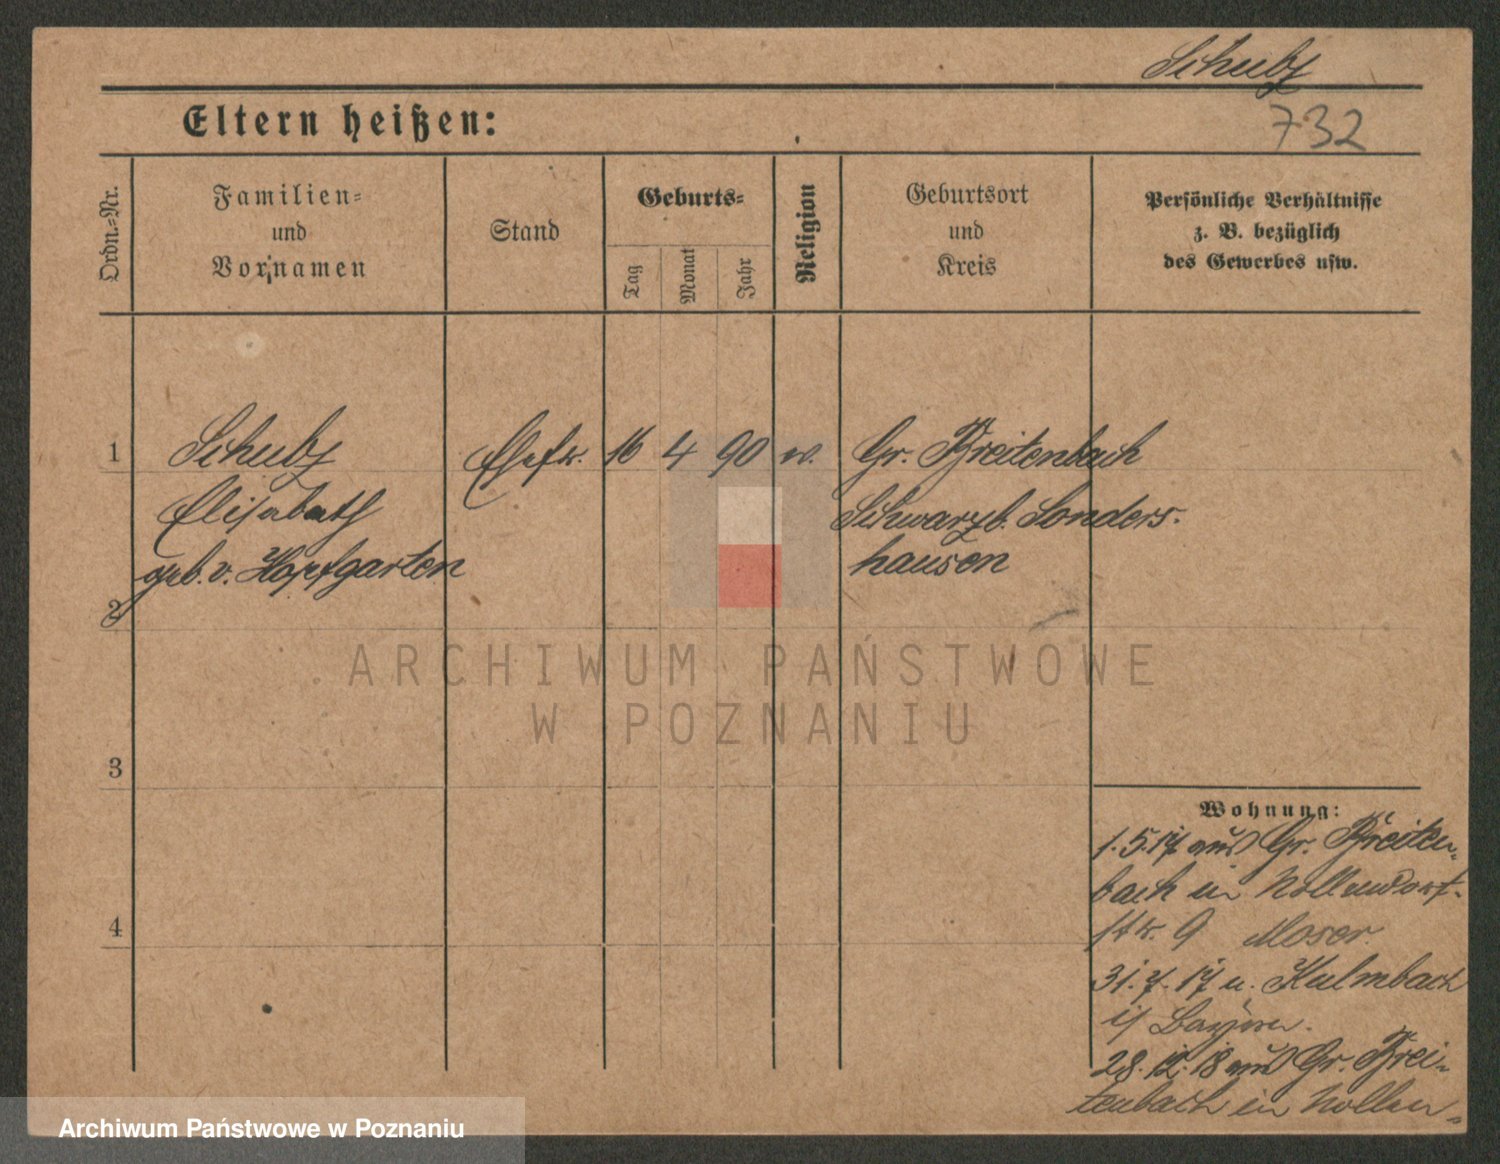 Schulz
732
Eltern heißen:
Ordn.=Nr.
Familien=
und
Vornamen
Stand
Geburts=
Tag
Monat
Jahr
Religion
Geburtsort
und
Kreis
Persönliche Verhältnisse
z. B. bezüglich
des Gewerbes usw.
1 Schulz Ehefr. 16 4 90 ev. Gr. Breitenbach
Elisabeth Schwarzb. Sonders-
geb. v. Hopfgarten hausen
2
3
4
Wohnung:
1.5.17 aus Gr. Breiten-
bach in Nollendorf-
str. 9 Moser.
31.7.17 n. Kulmbach
i/ Bayern.
28.12.18 aus Gr. Brei-
tenbach in Nollen-
ARCHIWUM PAŃSTWOWE
W POZNANIU
Archiwum Państwowe w Poznaniu